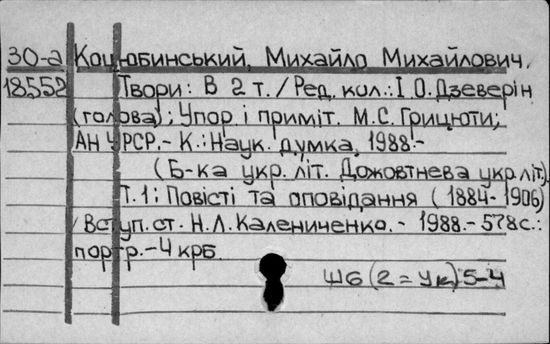 30-а Коцюбинський, Михайло Михайлович.
18552 Твори: В 2 т./ Ред. кол.: І.О.Дзеверін
(голова); Упор. і приміт. М.С.Грицюти;
АН УРСР.- К.: Наук. думка, 1988.-
(Б-ка укр. літ. Дожовтнева укр.літ).
Т.1: Повісті та оповідання (1884-1906)
/ Вступ. ст. Н.Л.Калениченко. - 1988.- 578с.:
портр.-4 крб
Ш6(2=Ук)5-4